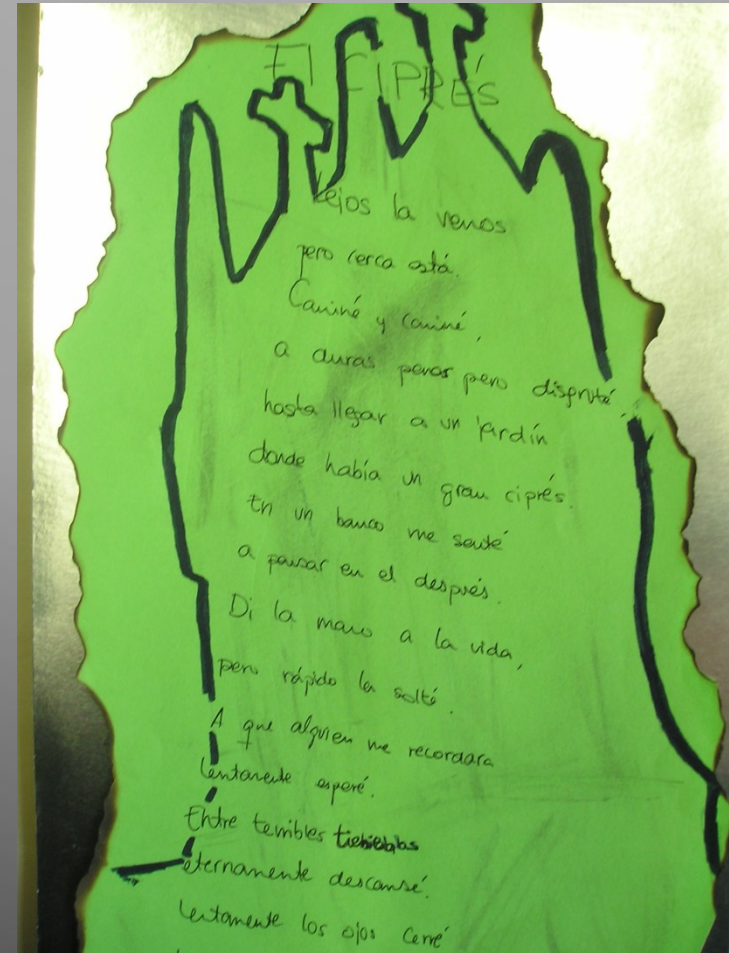 El CIPRÉS
Lejos la vemos
pero cerca está.
Caminé y caminé,
a duras penas pero disfruté,
hasta llegar a un jardín
donde había un gran ciprés.
En un banco me senté
a pensar en el después.
Di la mano a la vida,
pero rápido la solté.
A que alguien me recordara
lentamente esperé.
Entre terribles tinieblas
eternamente descansé.
Lentamente los ojos cerré